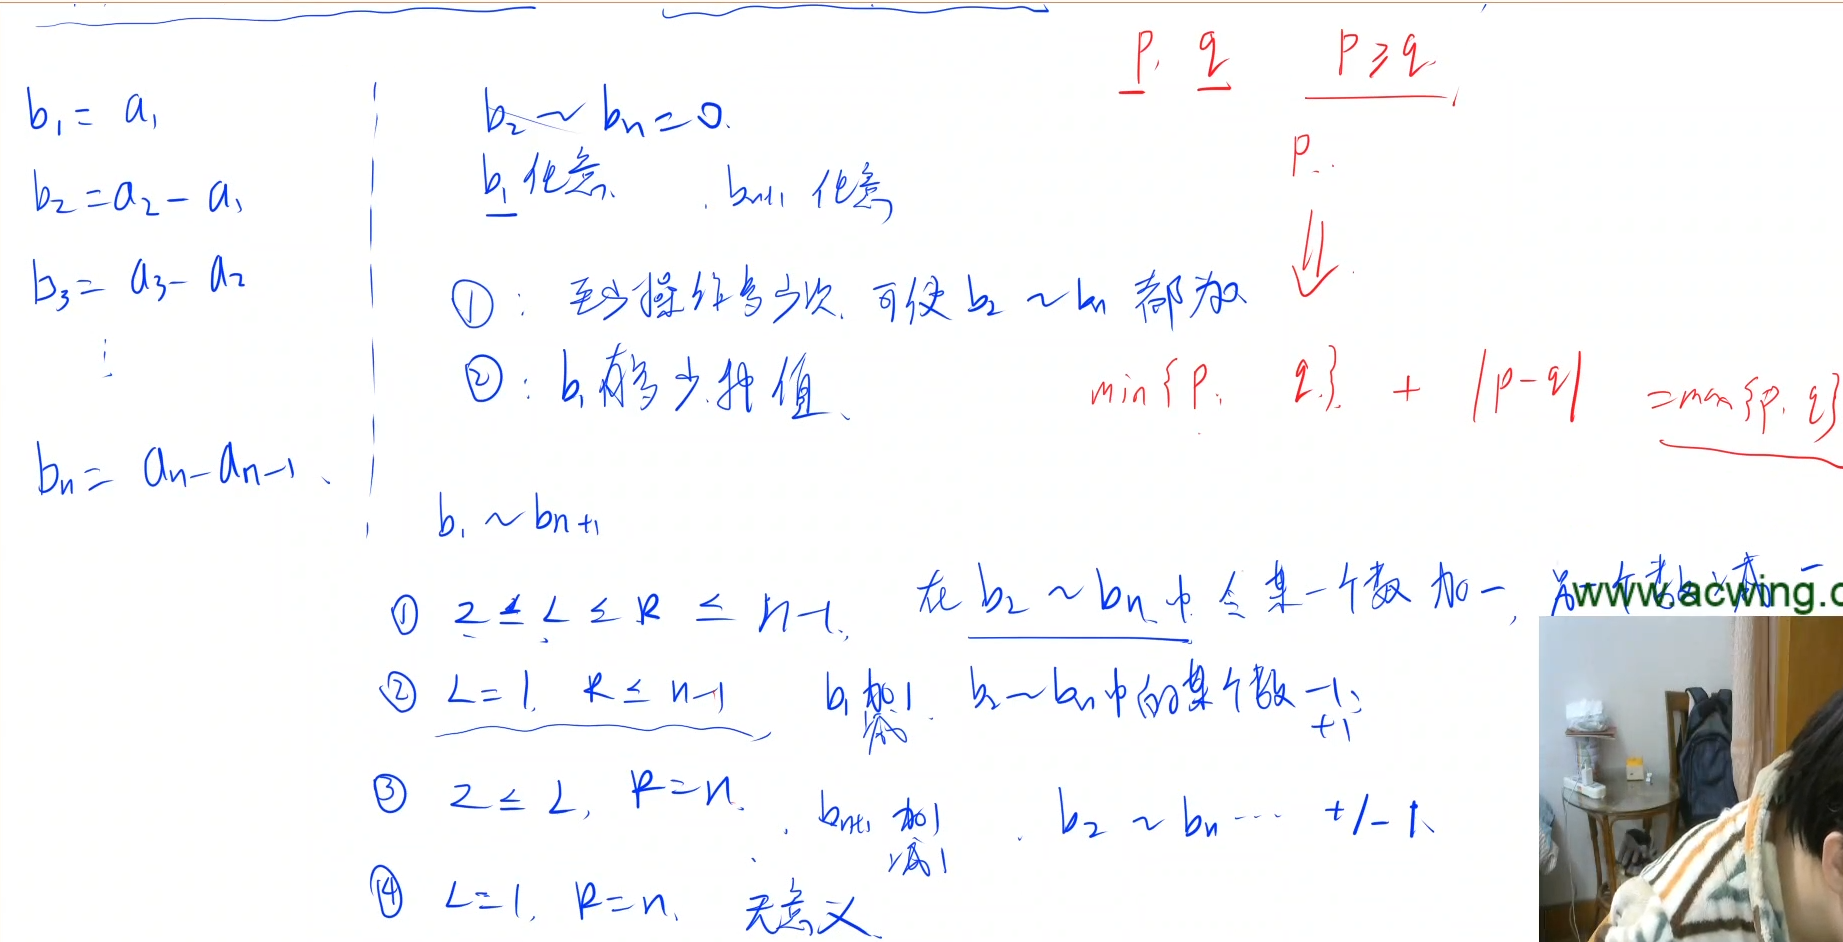 b₁ = a₁
b₂ = a₂ - a₁
b₃ = a₃ - a₂
⋮
bₙ = aₙ - aₙ₋₁
b₂ ~ bₙ = 0.
b₁ 任意. bₙ₊₁ 任意
①: 至少操作多少次, 可使 b₂ ~ bₙ 都为0
②: b₁ 有多少种值
p, q p ≥ q
p.
min{p, q} + |p-q| = max{p, q}
b₁ ~ bₙ₊₁
① 2 ≤ L ≤ R ≤ n-1, 在 b₂ ~ bₙ 中令某一个数加一,
② L=1, R ≤ n-1 b₁ 加1 减 b₂ ~ bₙ 中的某个数 -1, +1
③ 2 ≤ L, R=n. bₙ₊₁ 加1 减1 b₂ ~ bₙ ... +/- 1
④ L=1, R=n, 无意义
www.acwing.c